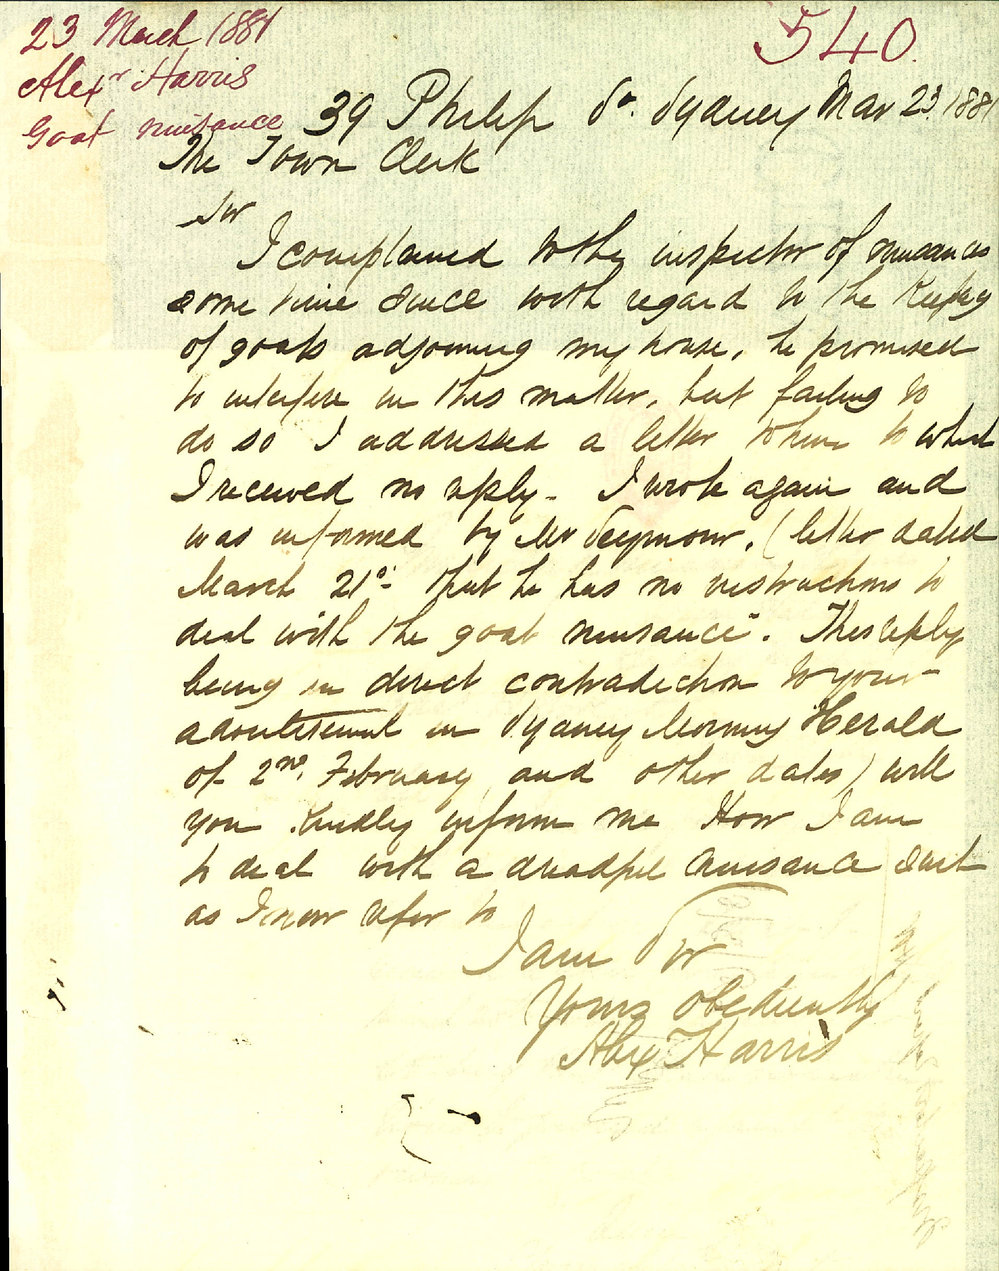 23 March 1881
540.
Alexr Harris
Goat nuisance
39 Philip St. Sydney Mar 23. 1881
The Town Clerk
Sir
I complained to the inspector of nuisances
some time since with regard to the keeping
of goats adjoining my house, he promised
to interfere in this matter, but failing to
do so I addressed a letter to him to which
I received no reply - I wrote again and
was informed by Mr Seymour, (letter dated
March 21st that he has no instructions to
deal with the goat nuisance". This reply
being in direct contradiction to your
advertisement in Sydney Morning Herald
of 2nd. February and other dates) will
you kindly inform me How I am
to deal with a dreadful nuisance such
as I now refer to
I am Sir
Yours obediently
Alex Harris